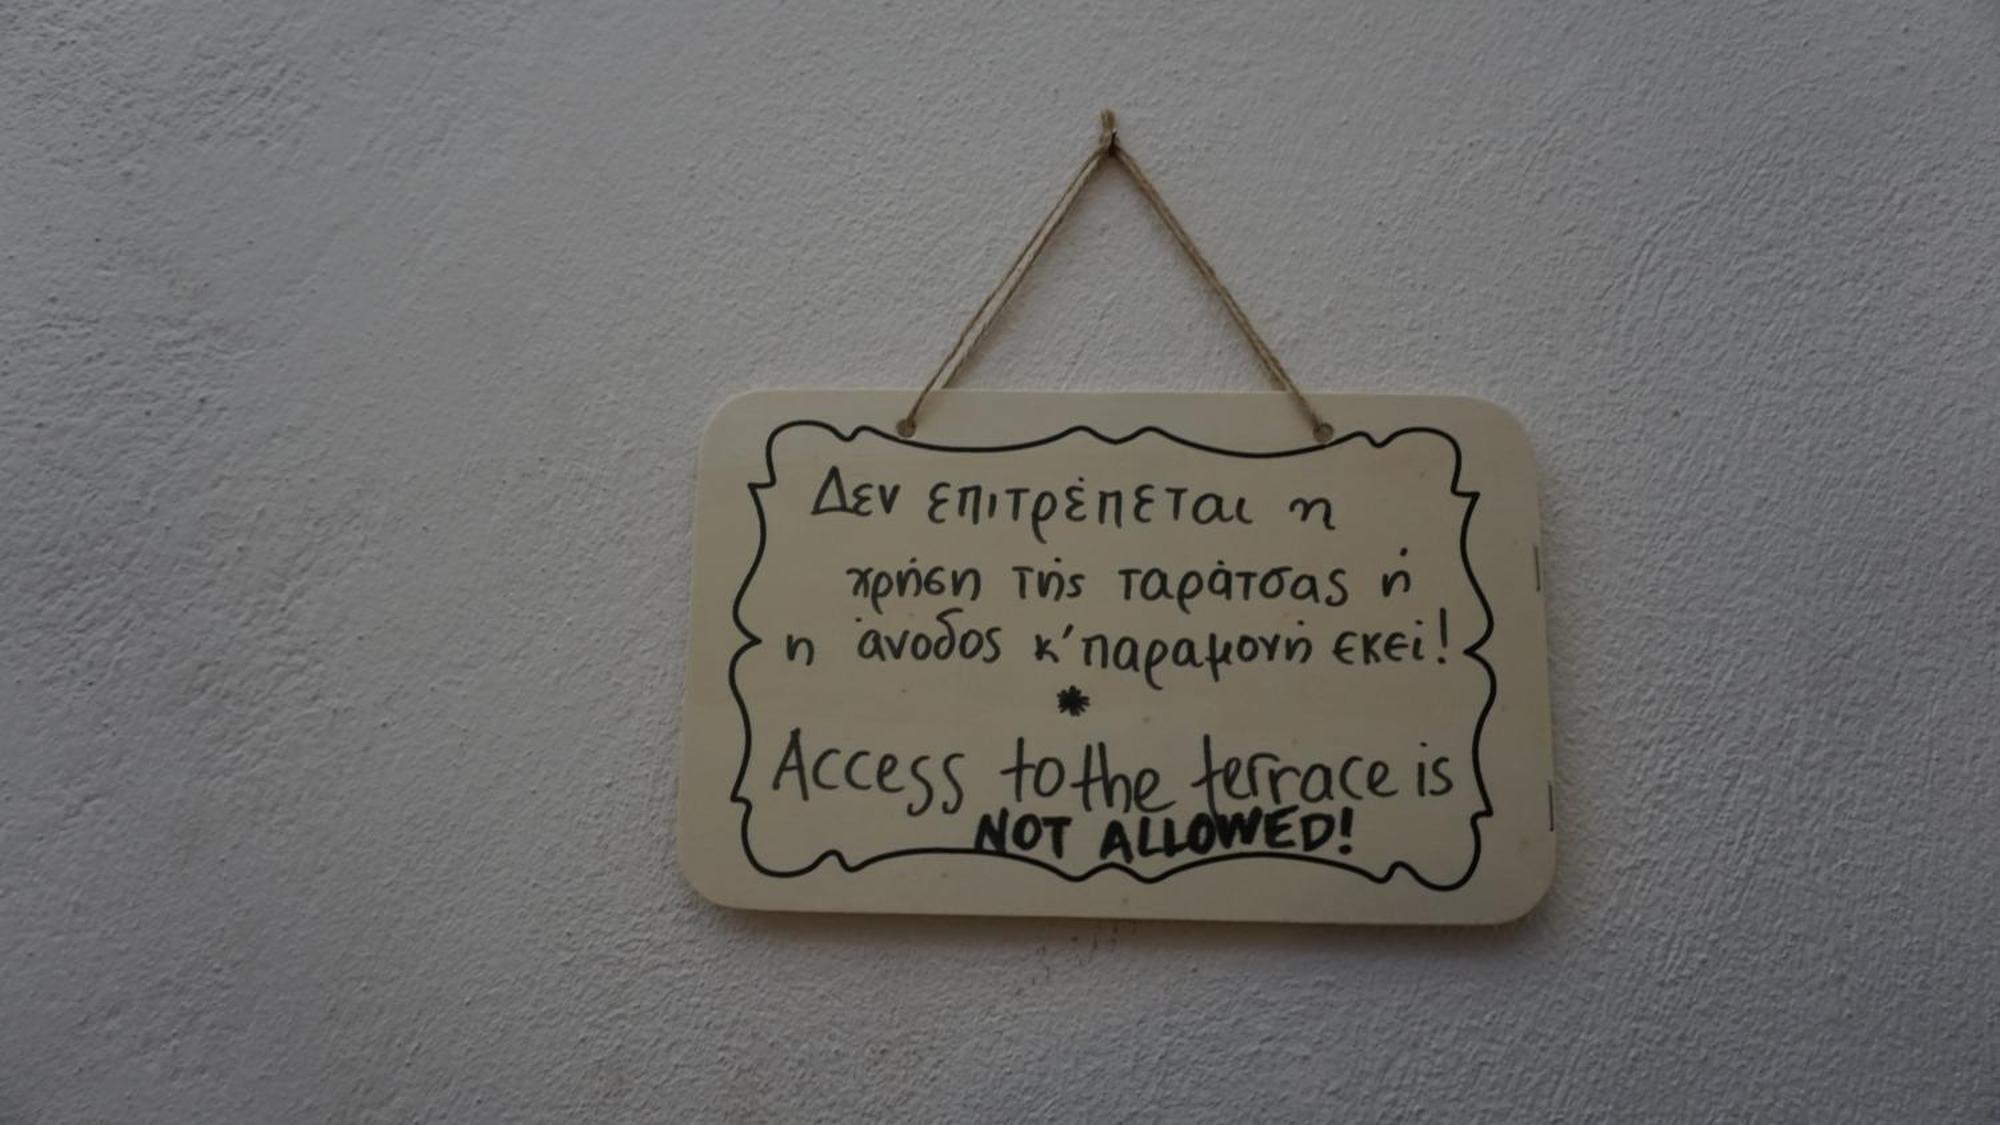 Δεν επιτρέπεται η
χρήση τής ταράτσας ή
η άνοδος κ' παραμονή εκεί!
*
Access to the terrace is
NOT ALLOWED!